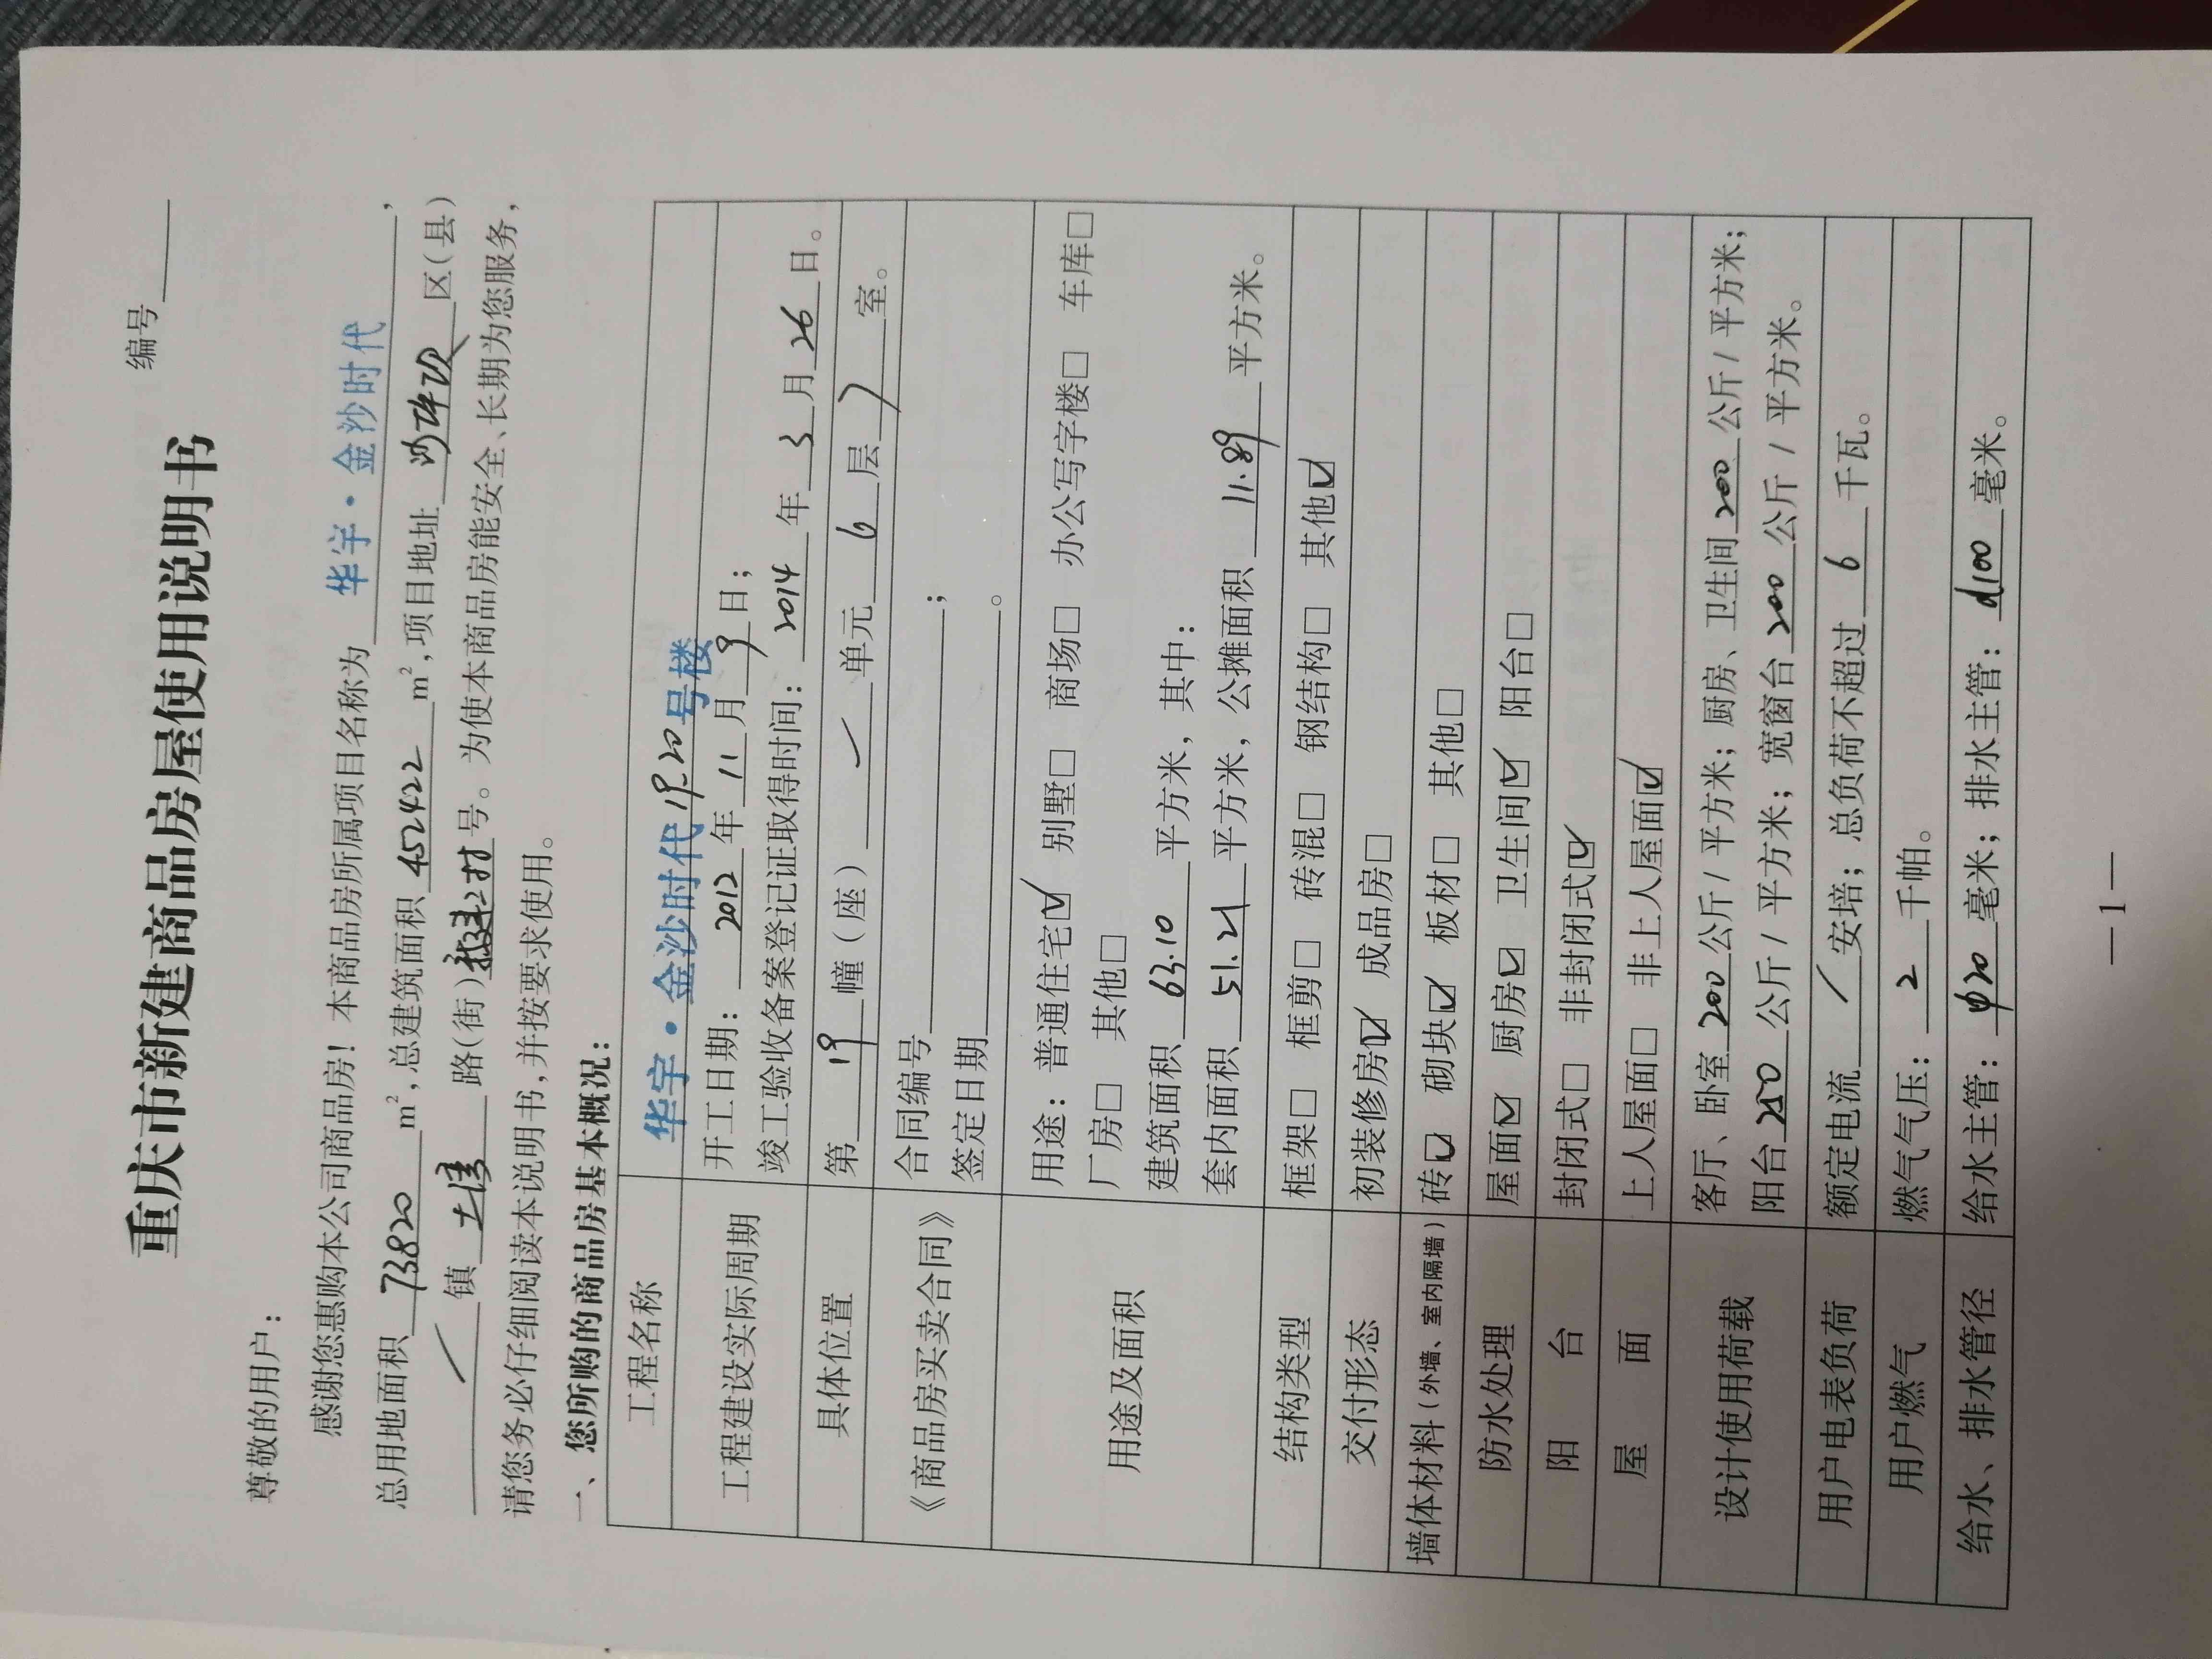 重庆市新建商品房屋使用说明书
编号
尊敬的用户：
感谢您惠购本公司商品房！本商品房所属项目名称为 华宇·金沙时代，
总用地面积 73820 m²，总建筑面积 452422 m²，项目地址 沙坪坝 区（县）
/ 镇 路（街） 号。为使本商品房能安全、长期为您服务，
请您务必仔细阅读本说明书，并按要求使用。
一、您所购的商品房基本概况：
工程名称 华宇·金沙时代19-20号楼
工程建设实际周期 开工日期：2012年11月9日；
竣工验收备案登记证取得时间：2014年3月26日。
具体位置 第19幢（座）/单元6层7室。
《商品房买卖合同》 合同编号；
签定日期。
用途及面积 用途：普通住宅☑ 别墅□ 商场□ 办公写字楼□ 车库□
厂房□ 其他□
建筑面积 63.10 平方米，其中：
套内面积 51.21 平方米，公摊面积 11.89 平方米。
结构类型 框架□ 框剪□ 砖混□ 钢结构□ 其他☑
交付形态 初装修房☑ 成品房□
墙体材料（外墙、室内隔墙） 砖☑ 砌块☑ 板材□ 其他□
防水处理 屋面☑ 厨房☑ 卫生间☑ 阳台□
阳台 封闭式□ 非封闭式☑
屋面 上人屋面□ 非上人屋面☑
设计使用荷载 客厅、卧室 200 公斤/平方米；厨房、卫生间 200 公斤/平方米；
阳台 250 公斤/平方米；宽窗台 200 公斤/平方米。
用户电表负荷 额定电流 / 安培；总负荷不超过 6 千瓦。
用户燃气 燃气气压：2 千帕。
给水、排水管径 给水主管：φ20 毫米；排水主管：d100 毫米。
—1—